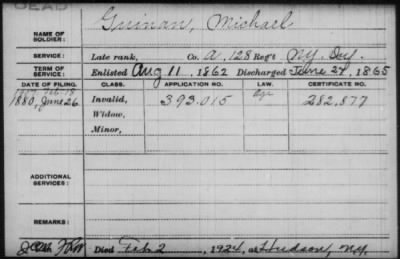 DEAD
Guinan, Michael
NAME OF SOLDIER:
SERVICE: Late rank, Co. A, 128 Reg't N.Y. Inf.
TERM OF SERVICE: Enlisted Aug 11, 1862 Discharged June 27, 1865
DATE OF FILING. CLASS. APPLICATION NO. LAW. CERTIFICATE NO.
1880, June 26 Invalid, 393.015 282,877
Widow,
Minor,
ADDITIONAL SERVICES:
REMARKS:
Died Feb 2, 1924, at Hudson, N.Y.